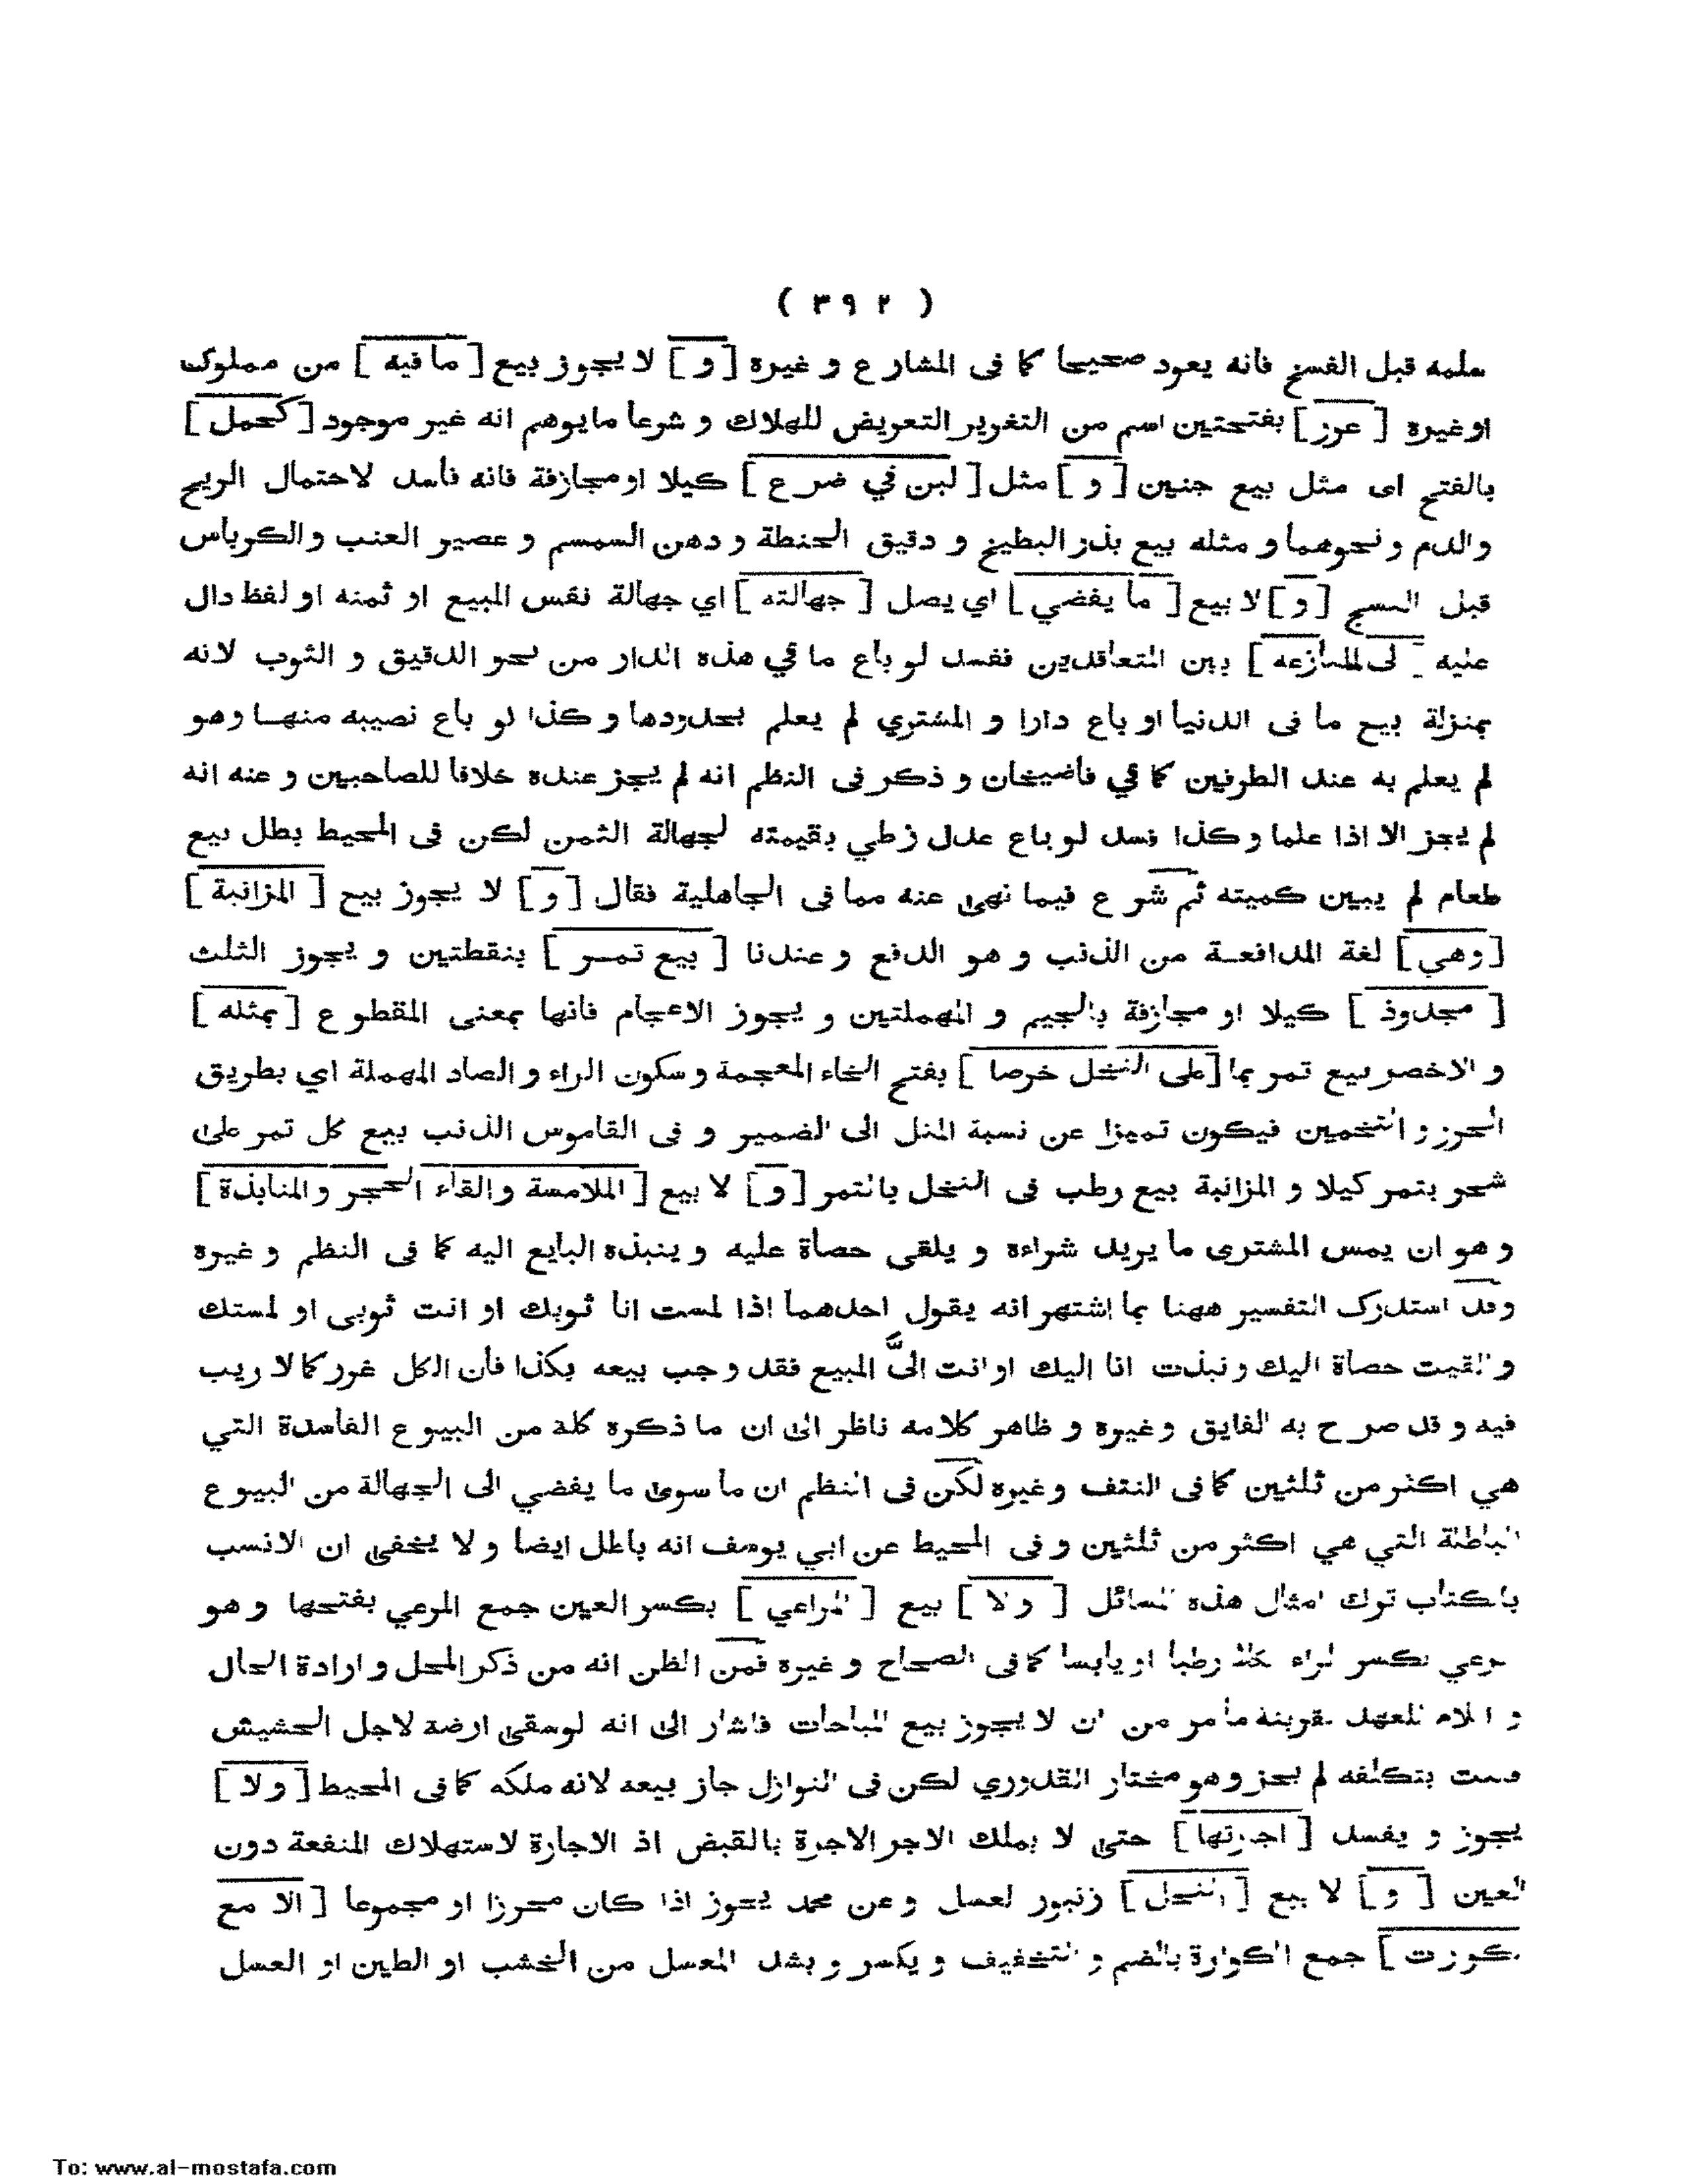 ( ٣٩٢ )
سلمه قبل الفسخ فانه يعود صحيحا كما فى المشارع و غيره [ و ] لا يجوز بيع [ ما فيه ] من مملوك
اوغيره [ غرر ] بفتحتين اسم من التغرير التعريض للهلاك و شرعا مايوهم انه غير موجود [ كحمل ]
بالفتح اى مثل بيع جنين [ و ] مثل [ لبن في ضرع ] كيلا او مجازفة فانه فاسد لاحتمال الريح
والدم ونحوهما و مثله بيع بذر البطيخ و دقيق الحنطة و دهن السمسم و عصير العنب والكرباس
قبل النسج [ و ] لا بيع [ ما يفضي ] اي يصل [ جهالته ] اي جهالة نفس المبيع او ثمنه او لفظ دال
عليه [ الى المنازعه ] بين المتعاقدين ففسد لو باع ما في هذه الدار من نحو الدقيق و الثوب لانه
بمنزلة بيع ما فى الدنيا او باع دارا و المشتري لم يعلم بحدودها و كذا لو باع نصيبه منهـا وهو
لم يعلم به عند الطرفين كما في قاضيخان و ذكر فى النظم انه لم يجز عنده خلافا للصاحبين و عنه انه
لم يجز الا اذا علما و كذا فسد لو باع عدل زطي بقيمته لجهالة الثمن لكن فى المحيط بطل بيع
طعام لم يبين كميته ثم شرع فيما نهى عنه مما فى الجاهلية فقال [ و ] لا يجوز بيع [ المزابنة ]
[ وهي ] لغة المدافعـة من الذنب و هو الدفع و عندنا [ بيع تمـر ] بنقطتين و يجوز الثلث
[ مجدوذ ] كيلا او مجازفة بالجيم و المهملتين و يجوز الاعجام فانها بمعنى المقطوع [ بمثله ]
و الاخصر بيع تمر بما [ على النخل خرصا ] بفتح الخاء المعجمة و سكون الراء و الصاد المهملة اي بطريق
الحزر و التخمين فيكون تميزا عن نسبة المثل الى الضمير و فى القاموس الذنب بيع كل تمر على
شجر بتمر كيلا و المزابنة بيع رطب فى النخل بالتمر [ و ] لا بيع [ الملامسة والقاء الحجر والمنابذة ]
و هو ان يمس المشترى ما يريد شراءه و يلقى حصاة عليه و ينبذه البايع اليه كما فى النظم و غيره
وقد استدرك التفسير ههنا بما اشتهر انه يقول احدهما اذا لمست انا ثوبك او انت ثوبى او لمستك
و القيت حصاة اليك و نبذت انا اليك او انت اليَّ المبيع فقد وجب بيعه بكذا فأن الكل غرر كما لا ريب
فيه و قد صرح به الفايق وغيره و ظاهر كلامه ناظر الى ان ما ذكره كله من البيوع الفاسدة التي
هي اكثر من ثلثين كما فى النتف و غيره لكن فى النظم ان ما سوى ما يفضي الى الجهالة من البيوع
الباطلة التي هي اكثر من ثلثين و فى المحيط عن ابي يوسف انه باطل ايضا و لا يخفى ان الانسب
بالكتاب ترك امثال هذه المسائل [ و لا ] بيع [ المراعي ] بكسر العين جمع المرعي بفتحها و هو
الرعي بكسر الراء كلأ رطبا او يابسا كما فى الصحاح و غيره فمن الظن انه من ذكر المحل و ارادة الحال
و اللام للعهد بقرينة مامر من ان لا يجوز بيع المباحات فاشار الى انه لو سقى ارضه لاجل الحشيش
بتكلفه لم يجز وهو مختار القدوري لكن فى النوازل جاز بيعه لانه ملكه كما فى المحيط [ و لا ]
يجوز و يفسد [ اجارتها ] حتى لا يملك الاجر الاجرة بالقبض اذ الاجارة لاستهلاك المنفعة دون
العين [ و ] لا بيع [ النحل ] زنبور لعسل و عن محمد يجوز اذا كان محرزا او مجموعا [ الا مع
جمع الكوارة بالضم و التخفيف و يكسر و يشد المعسل من الخشب او الطين او العسل
To: www.al-mostafa.com